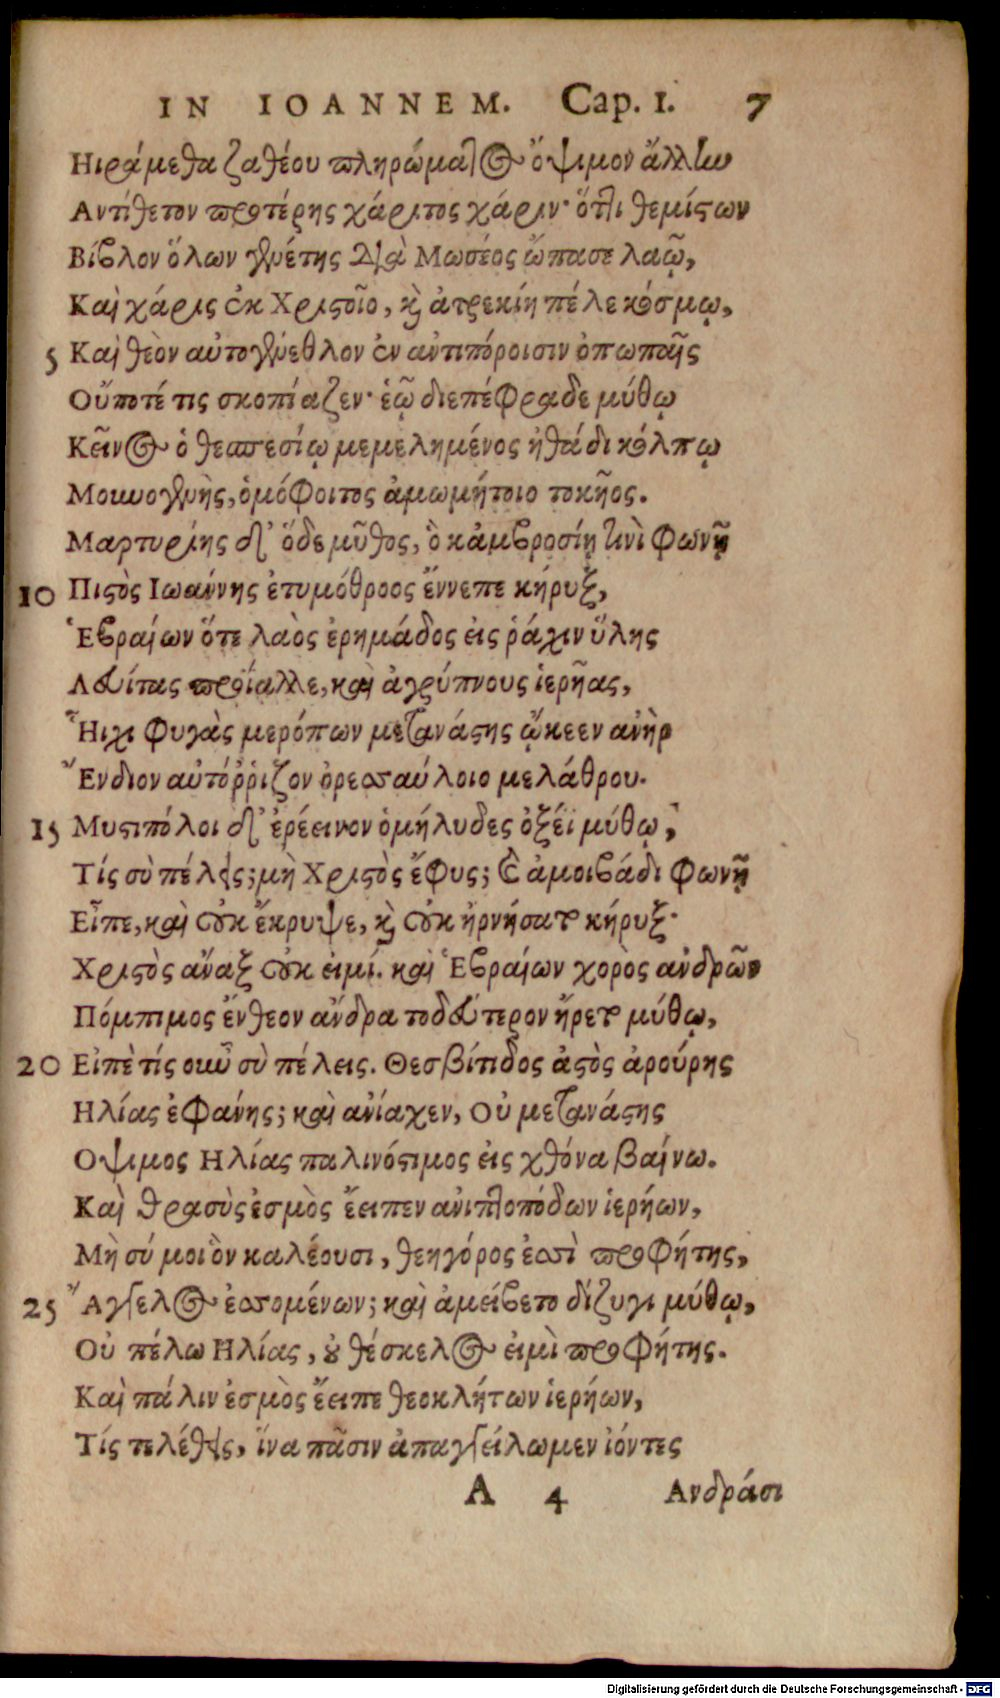 IN IOANNEM. Cap. 1. 7
Ηιράμεθα ζαθέου πληρώματος ὄψιμον ἄλλην
Αντίθετον προτέρης χάριτος χάριν· ὅττι θεμίστων
Βίβλον ὅλων γενέτης διὰ Μωσέος ὤπασε λαῷ,
Καὶ χάρις ἐκ Χριστοῖο, καὶ ἀτρεκίη πέλε κόσμῳ,
5 Καὶ θεὸν αὐτογένεθλον ἐν ἀντιπόροισιν ὀπωπαῖς
Οὔποτέ τις σκοπίαζεν· ἑῷ διεπέφραδε μύθῳ
Κεῖνος ὁ θεσπεσίῳ μεμελημένος ἠθάδι κόλπῳ
Μουνογενὴς, ὁμόφοιτος ἀμωμήτοιο τοκῆος.
Μαρτυρίης δ' ὅδε μῦθος, ὃ κἀμβροσίῃ τινὶ φωνῇ
10 Πιστὸς Ιωάννης ἐτυμόθροος ἔννεπε κήρυξ,
Ἑβραίων ὅτε λαὸς ἐρημάδος εἰς ῥάχιν ὕλης
Λευίτας προΐαλλε, καὶ ἀγρύπνους ἱερῆας,
Ἧιχι φυγὰς μερόπων μετανάστης ᾤκεεν ἀνὴρ
Ἔνδιον αὐτόῤῥιζον ὀρεσταύλοιο μελάθρου.
15 Μυστιπόλοι δ' ἐρέεινον ὁμήλυδες ὀξέϊ μύθῳ,
Τίς σὺ πέλεις; μὴ Χριστὸς ἔφυς; καὶ ἀμοιβάδι φωνῇ
Εἶπε, καὶ οὐκ ἔκρυψε, καὶ οὐκ ἠρνήσατο κήρυξ·
Χριστὸς ἄναξ οὐκ εἰμί. καὶ Ἑβραίων χορὸς ἀνδρῶν
Πόμπιμος ἔνθεον ἄνδρα τοδεύτερον ἤρετο μύθῳ,
20 Εἰπὲ τίς οὖν σὺ πέλεις. Θεσβίτιδος ἀστὸς ἀρούρης
Ηλίας ἐφάνης; καὶ ἀνίαχεν, Οὐ μετανάστης
Οψιμος Ηλίας παλινόστιμος εἰς χθόνα βαίνω.
Καὶ θρασὺς ἑσμὸς ἔειπεν ἀνιπτοπόδων ἱερήων,
Μὴ σύ μοι ὃν καλέουσι, θεηγόρος ἐσσὶ προφήτης,
25 Ἄγγελος ἐσσομένων; καὶ ἀμείβετο δίζυγι μύθῳ,
Οὐ πέλω Ηλίας, οὐ θέσκελος εἰμὶ προφήτης.
Καὶ πάλιν ἑσμὸς ἔειπε θεοκλήτων ἱερήων,
Τίς τελέθεις, ἵνα πᾶσιν ἀπαγγείλωμεν ἰόντες
A 4 Ανδράσι
Digitalisierung gefördert durch die Deutsche Forschungsgemeinschaft - DFG